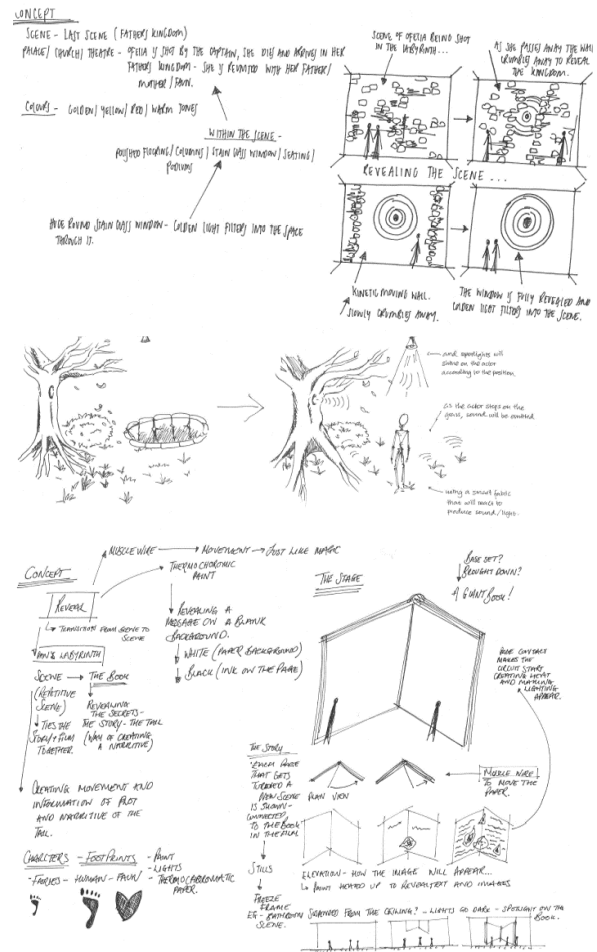 CONCEPT
SCENE - LAST SCENE (FATHERS KINGDOM)
PALACE/CHURCH/THEATRE - OFELIA IS SHOT BY THE CAPTAIN, SHE DIES AND ARRIVES IN HER
FATHERS KINGDOM - SHE IS REUNITED WITH HER FATHER/
MOTHER/FAUN.
COLOURS - GOLDEN/YELLOW/RED/WARM TONES
WITHIN THE SCENE -
POLISHED FLOORING/COLUMNS/STAIN GLASS WINDOW/SEATING/
PODIUMS
HUGE ROUND STAIN GLASS WINDOW - GOLDEN LIGHT FILTERS INTO THE SPACE
THROUGH IT.
SCENE OF OFELIA BEING SHOT
IN THE LABYRINTH...
AS SHE PASSES AWAY THE WALL
CRUMBLES AWAY TO REVEAL
THE KINGDOM.
REVEALING THE SCENE...
KINETIC MOVING WALL.
SLOWLY CRUMBLES AWAY.
THE WINDOW IS FULLY REVEALED AND
GOLDEN LIGHT FILTERS INTO THE SCENE.
and spotlights will
shine on the actor
according to the position.
as the actor steps on the
grass, sound will be emitted
using a smart fabric
that will react to
produce sound/light.
CONCEPT
MUSCLE WIRE
MOVEMENT
JUST LIKE MAGIC
THERMOCHROMIC
PAINT
REVEAL
TRANSITION FROM SCENE TO
SCENE
PAN'S LABYRINTH
REVEALING A
MESSAGE ON A BLANK
BACKGROUND.
WHITE (PAPER BACKGROUND)
BLACK (INK ON THE PAGE)
SCENE
THE BOOK
(REPETITIVE
SCENE)
REVEALING
THE SECRETS -
THE STORY - THE TALE
(WAY OF CREATING
A NARRATIVE)
TIES THE
STORY + FILM
TOGETHER.
CREATING MOVEMENT AND
INFORMATION OF PLOT
AND NARRATIVE OF THE
TALE.
CHARACTERS - FOOTPRINTS - PAINT
- LIGHTS
- FAIRIES - HUMAN - FAUN - THERMOCHROMATIC
PAPER.
THE STAGE
BASE SET?
BROUGHT DOWN?
A GIANT BOOK!
PAGE CONTACT
MAKES THE
CIRCUIT START
CREATING HEAT
AND MAKING
LIGHTING
APPEAR.
THE STORY
EACH PAGE
THAT GETS
TURNED A
NEW SCENE
IS SHOWN -
CONNECTED
TO THE BOOK
IN THE FILM
PLAN VIEW
MUSCLE WIRE
TO MOVE THE
PAPER.
STILLS
FREEZE
FRAME
ELEVATION - HOW THE IMAGE WILL APPEAR...
PAINT HEATED UP TO REVEAL TEXT AND IMAGES
EG - BATHROOM SUSPENDED FROM THE CEILING? - LIGHTS GO DARK - SPOTLIGHT ON THE
SCENE.
BOOK.